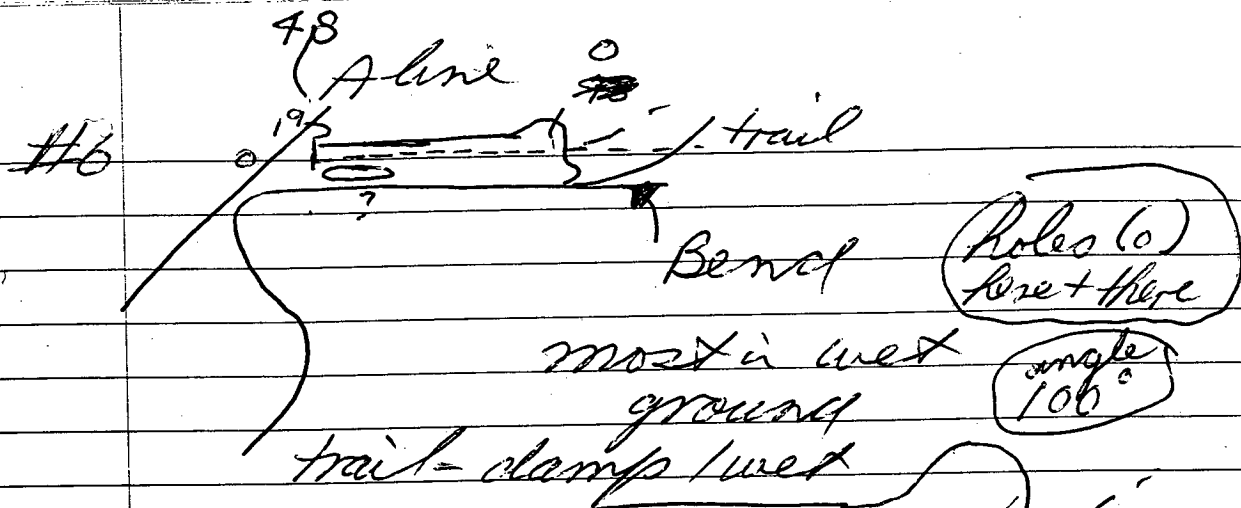 48
A line
0
19
trail
#6
0
?
Bend
holes (0)
here + there
most in wet
ground
angle
100°
trail - damp / wet